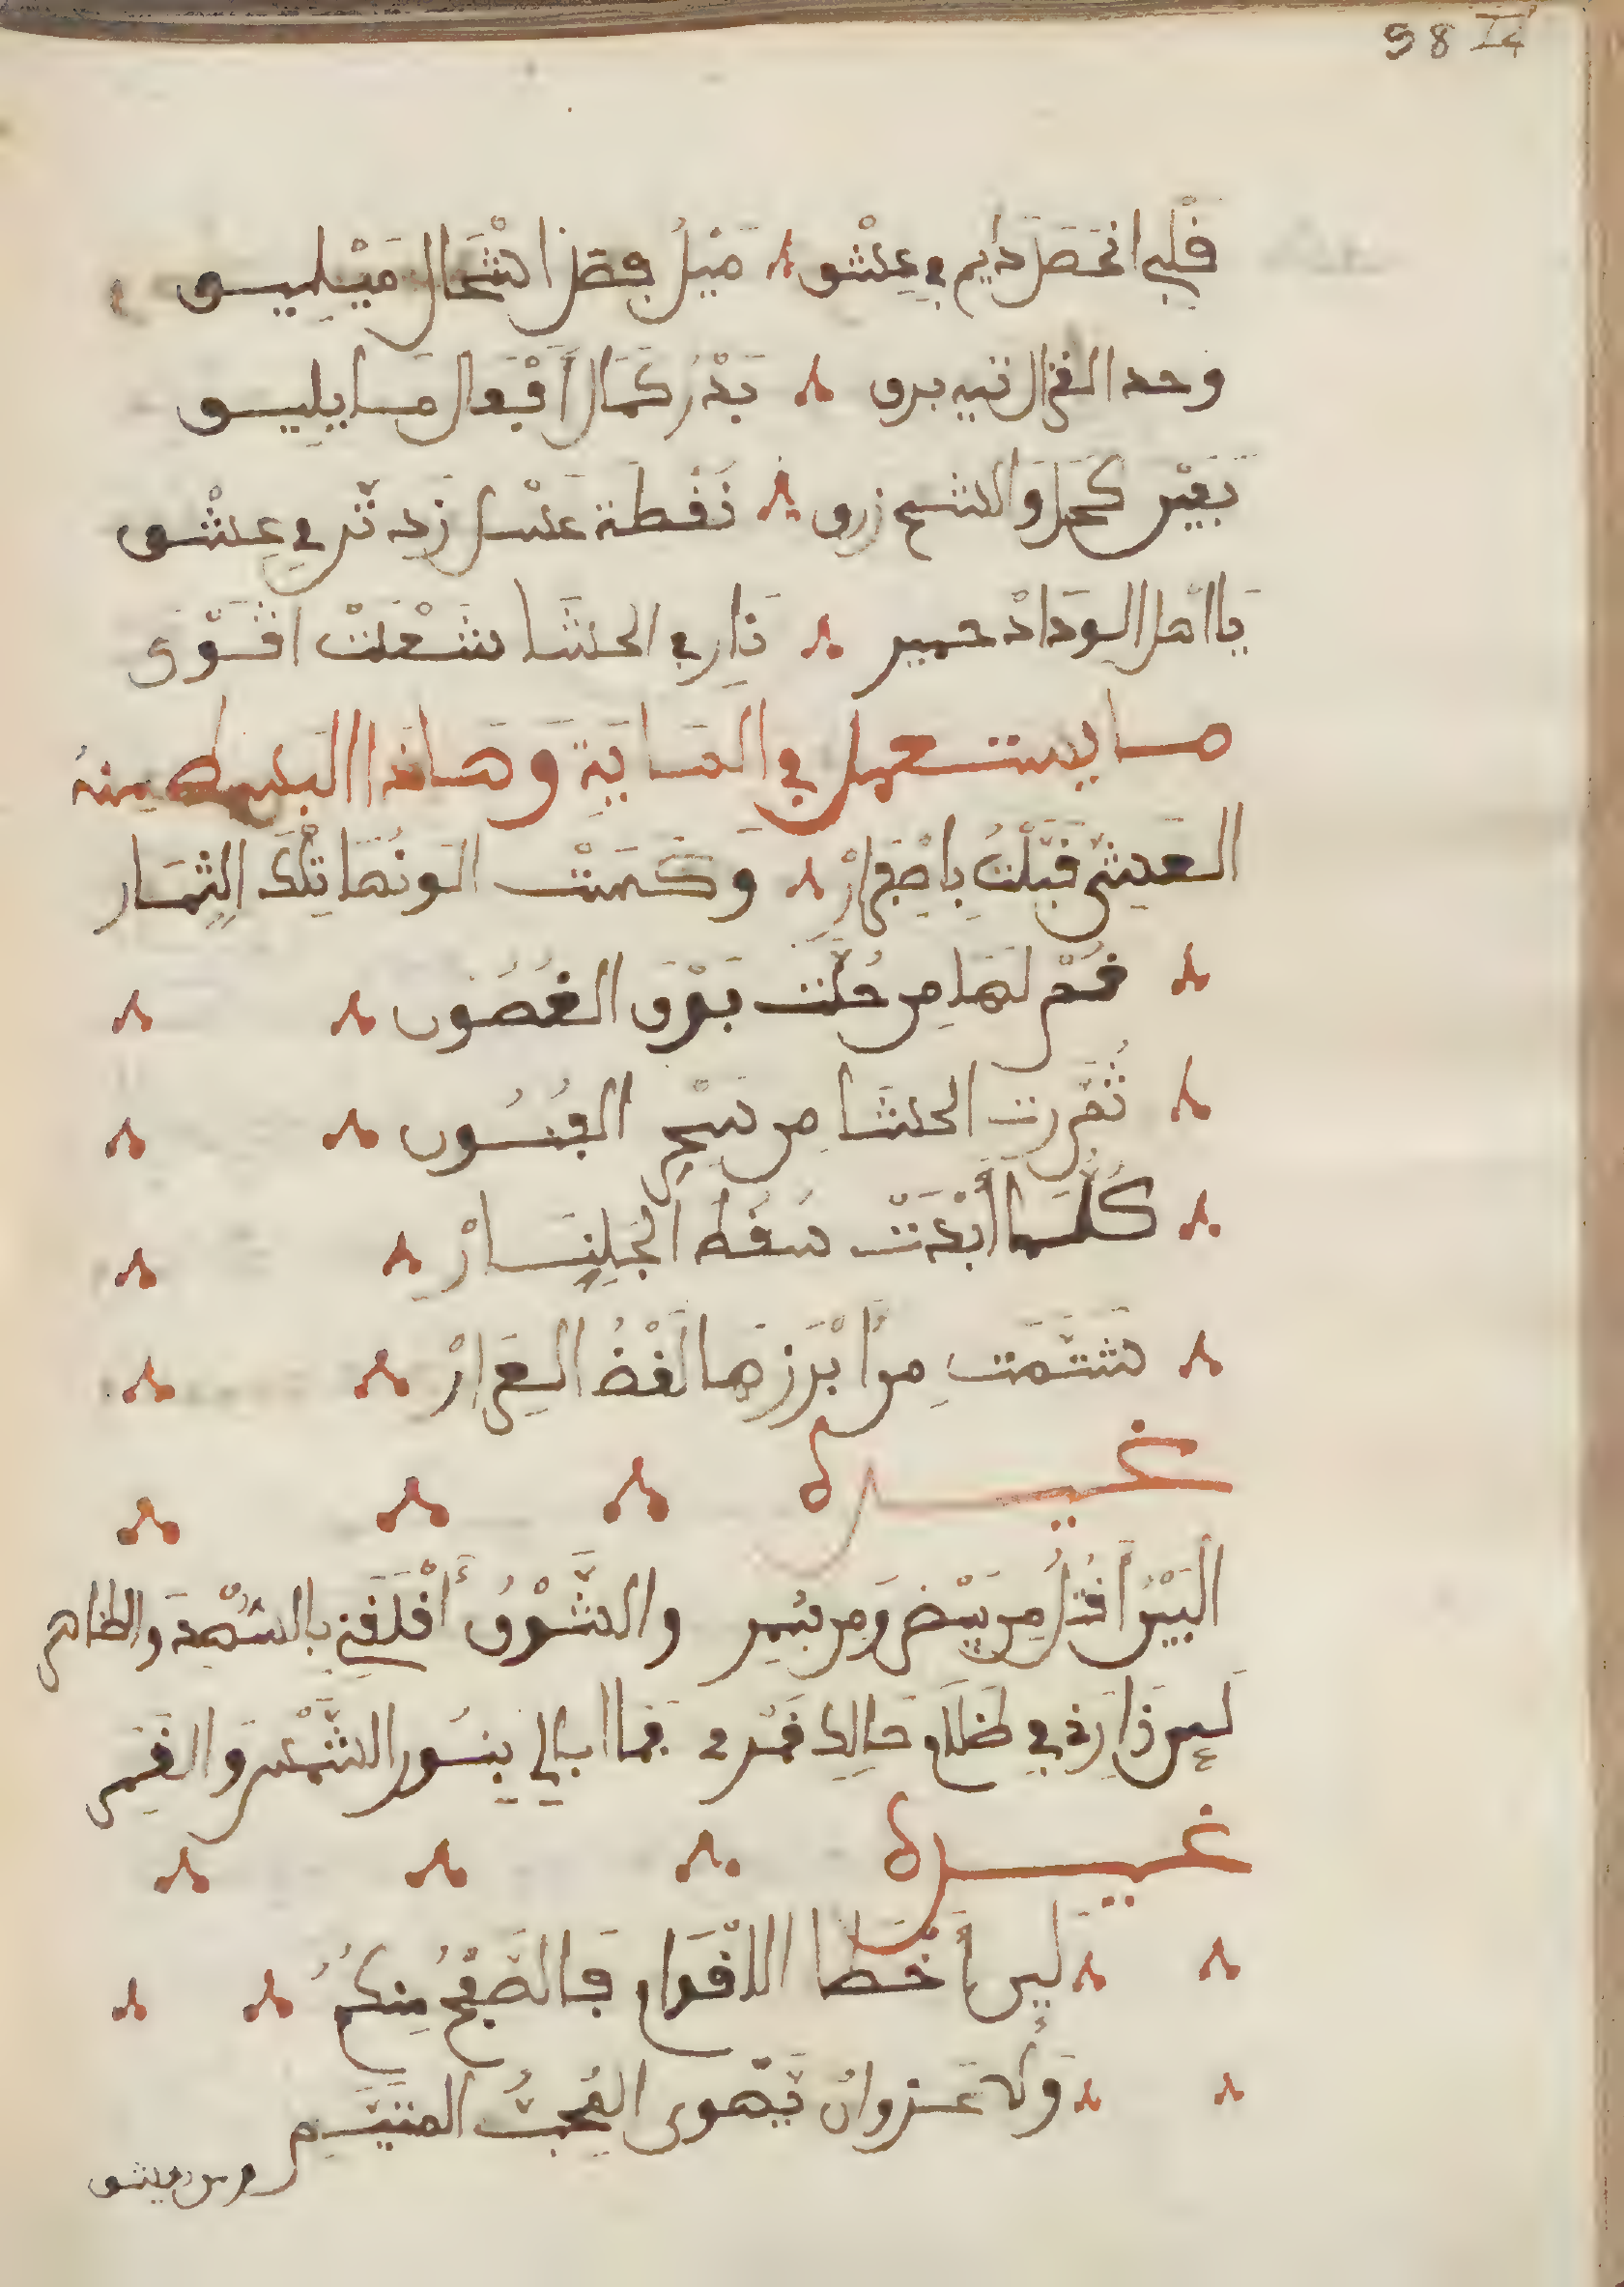 58
قلبي انحصل دايم في عشقو مثل فصل اشحال ميليو
وحد الغزال تيه برق بدر كمال أفعال مسايليو
بعين كحل والشح زرق نقطة عسل زد تر في عشقو
يا اهل الوداد حمير نار في الحشا شعلت اقوى
ما يستعمل في الماية وهاذا البسط منه
العيشي قبلت باصفرار وكست الونها تلك الثمار
قم لها من حلت فوق الغصون
نفرت الحشا من نسم الفنون
كلما أبدت سقط الجلنار
شتمت من أبرزها لغض العرار
غيره
البين أقتل من بيض ومن سمر والشوق أقلقني بالسهد والظاهر
لين زارني في ظلام حالك قمر فما ابالي بنور الشمس والقمر
غيره
لين أخطا الاقوام فالصفح منكم
ولا غزو ان يهوى المحب المتيم
ومن ريشو